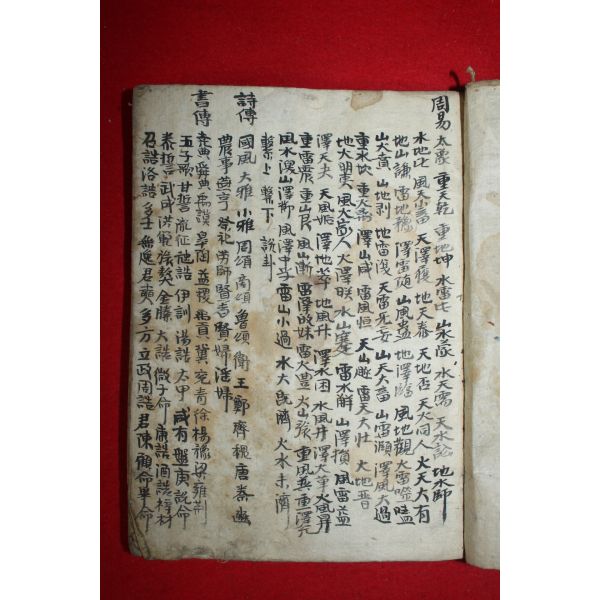 周易 重天乾 重地坤 水雷屯 山水蒙 水天需 天水訟 地水師
水地比 風天小畜 天澤履 地天泰 天地否 天火同人 火天大有
地山謙 雷地豫 澤雷隨 山風蠱 地澤臨 風地觀 火雷噬嗑
山火賁 山地剝 地雷復 天雷无妄 山天大畜 山雷頤 澤風大過
重水坎 重火离 澤山咸 雷風恒 天山遯 雷天大壯 火地晋
地火明夷 風火家人 火澤睽 水山蹇 雷水解 山澤損 風雷益
澤天夬 天風姤 澤地萃 地風升 澤水困 水風井 澤火革 火風鼎
重雷震 重山艮 風山漸 雷澤歸妹 雷火豊 火山旅 重風巽 重澤兌
風水渙 山澤節 風澤中孚 雷山小過 水火旣濟 火水未濟
繫上 繫下 說卦
詩傳 國風 大雅 小雅 周頌 商頌 魯頌 衛 王 鄭 齊 魏 唐 秦 豳
農事 燕享 祭祀 勞師 賢婦 淫婦
書傳 堯典 舜典 禹謨 皐陶 益稷 禹貢 冀 兗 青 徐 楊 豫 梁 雍 荊
五子歌 甘誓 胤征 仲誥 伊訓 湯誥 太甲 咸有 盤庚 說命
泰誓 武成 洪範 旅獒 金縢 大誥 微子命 康誥 酒誥 梓材
召誥 洛誥 多士 無逸 君奭 多方 立政 周誥 君陳 顧命 畢命